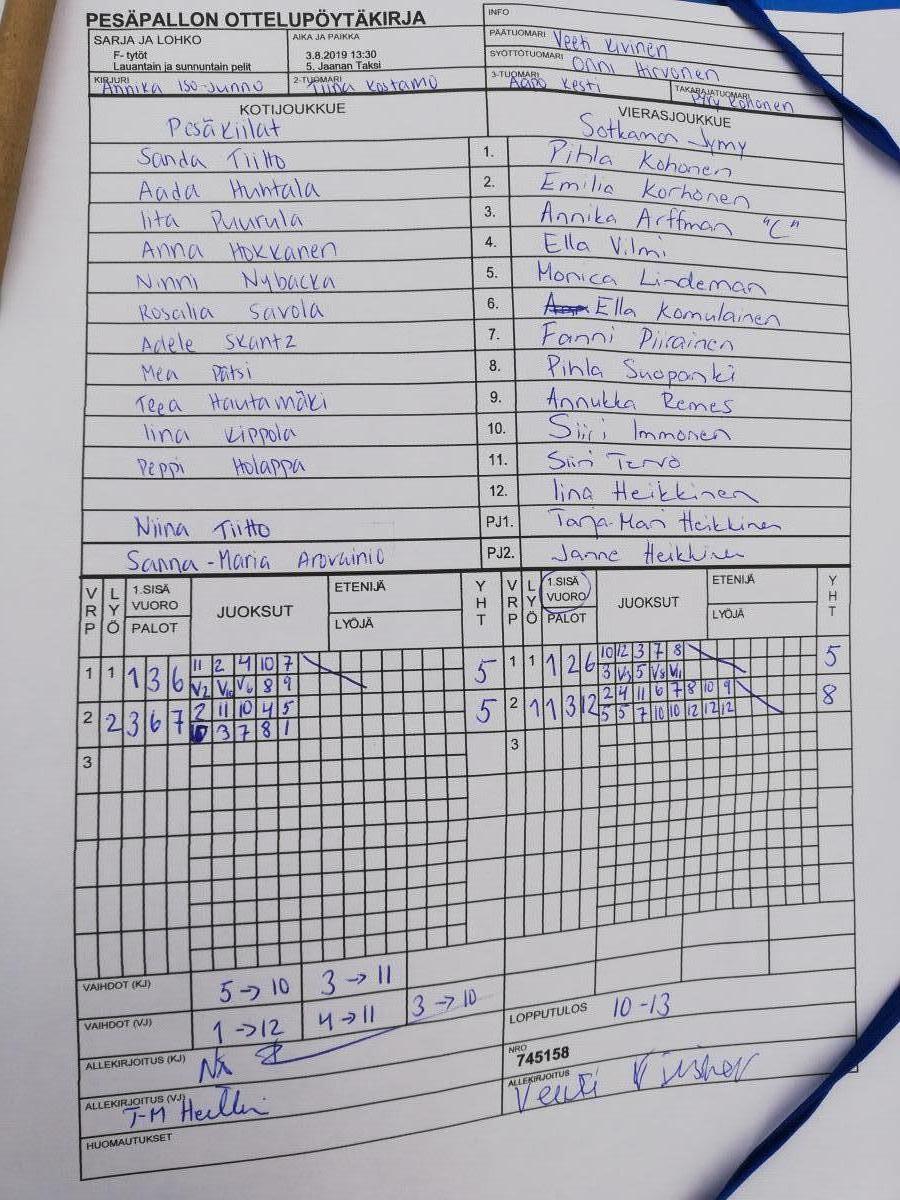 PESÄPALLON OTTELUPÖYTÄKIRJA
INFO
SARJA JA LOHKO
F- tytöt
Lauantain ja sunnuntain pelit
AIKA JA PAIKKA
3.8.2019 13:30
5. Jaanan Taksi
PÄÄTUOMARI Veeti Kivinen
SYÖTTÖTUOMARI Onni Hirvonen
KIRJURI Annika Iso-Junno
2-TUOMARI Tiina Kostamo
3-TUOMARI Aapo Kesti
TAKARAJATUOMARI Pyry Kohonen
KOTIJOUKKUE
Pesäkiilat
VIERASJOUKKUE
Sotkamon Jymy
Sanda Tiitto 1. Pihla Kohonen
Aada Huhtala 2. Emilia Korhonen
Iita Puurula 3. Annika Arffman "C"
Anna Hokkanen 4. Ella Vilmi
Ninni Nybacka 5. Monica Lindeman
Rosalia Savola 6. Ella Komulainen
Adele Skantz 7. Fanni Piirainen
Mea Pätsi 8. Pihla Suopanki
Teea Hautamäki 9. Annukka Remes
Iina Kippola 10. Siiri Immonen
Peppi Holappa 11. Siiri Tervo
12. Iina Heikkinen
Niina Tiitto PJ1. Tarja-Mari Heikkinen
Sanna-Maria Arovainio PJ2. Janne Heikkinen
VRP LYÖ 1.SISÄ VUORO PALOT JUOKSUT ETENIJÄ LYÖJÄ YHT VRP LYÖ 1.SISÄ VUORO PALOT JUOKSUT ETENIJÄ LYÖJÄ YHT
1 1 1 3 6 11 2 4 10 7 5 1 1 1 2 6 10 12 3 7 8 5
V2 V10 V6 8 9 3 V5 5 V8 V11
2 2 3 6 7 2 11 10 4 5 5 2 1 1 3 12 2 4 11 6 7 8 10 9 8
3 7 8 1 5 5 7 10 10 12 12 12
3 3
VAIHDOT (KJ) 5→10 3→11
VAIHDOT (VJ) 1→12 4→11 3→10
LOPPUTULOS 10-13
ALLEKIRJOITUS (KJ)
NRO
745158
ALLEKIRJOITUS (VJ)
T-M
ALLEKIRJOITUS
HUOMAUTUKSET